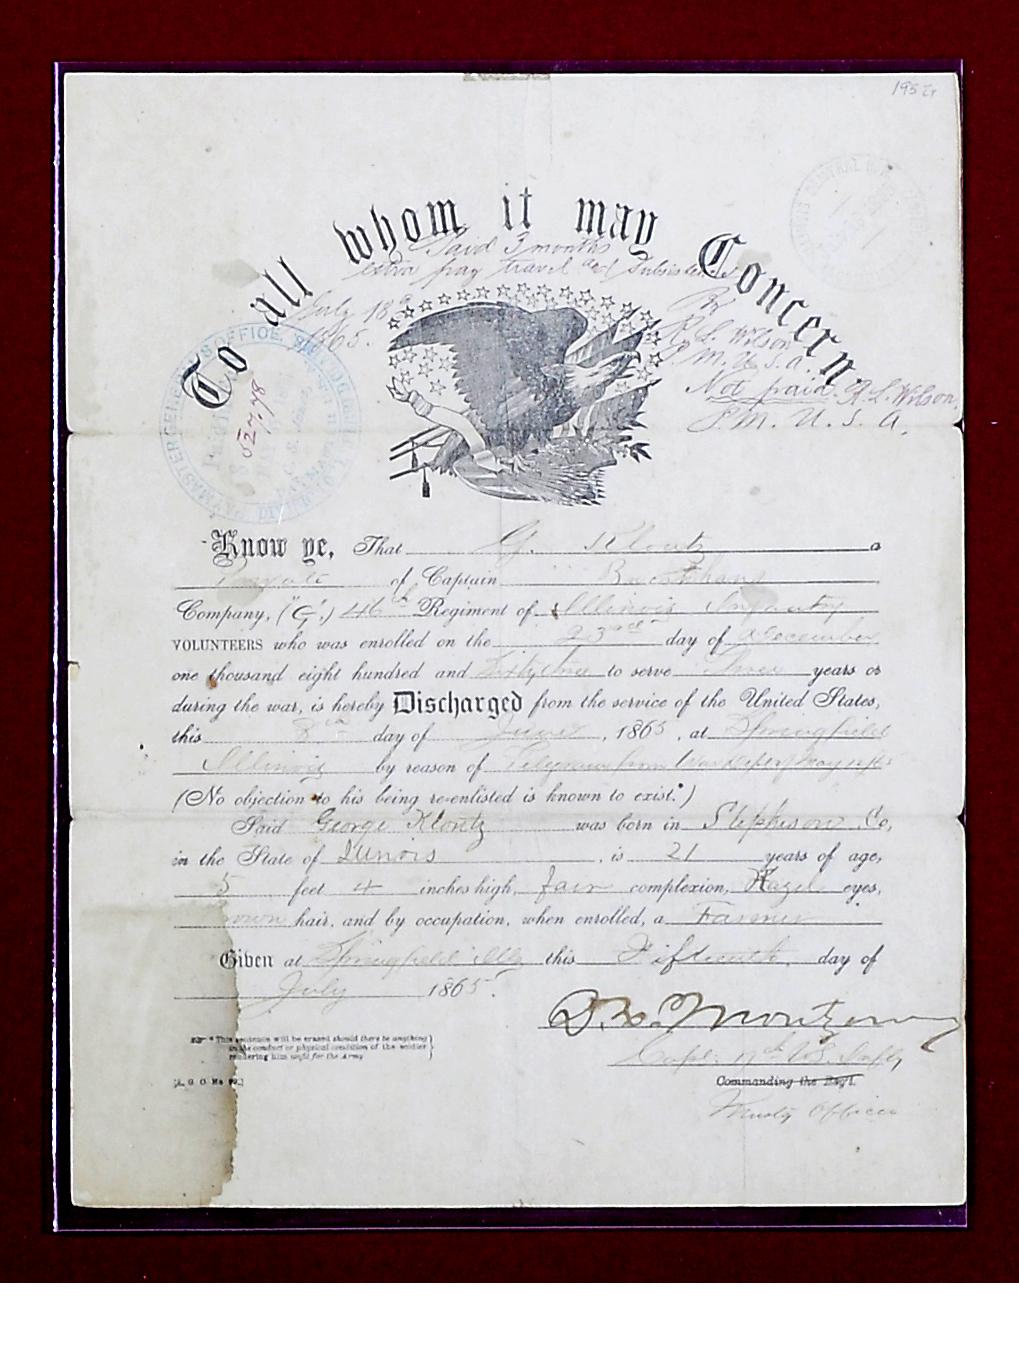 195
To all whom it may Concern
Paid 3 months
extra pay travel and Subsistence
July 18
1865.
By
R. L. Wilson
P. M. U. S. A.
Not paid. R. L. Wilson,
P. M. U. S. A.
PAYMASTER GENERAL'S OFFICE
527.78
Know ye, That G. Klontz a
Private of Captain
Company, ("G",) 46th Regiment of Illinois Infantry
VOLUNTEERS who was enrolled on the 23rd day of December
one thousand eight hundred and to serve Three years or
during the war, is hereby Discharged from the service of the United States,
this day of June, 1865, at Springfield
Illinois by reason of Telegram from War Dept of May
(No objection to his being re-enlisted is known to exist.*)
Said George Klontz was born in Stephison Co,
in the State of Illinois, is 21 years of age,
5 feet 4 inches high, fair complexion, Hazel eyes,
hair, and by occupation, when enrolled, a Farmer
Given at Springfield Ills this Fifteenth day of
July 1865.
D. Montgomery
Capt. U.S. Infty
Commanding the Reg't.
Officer
* This sentence will be erased should there be anything
in the conduct or physical condition of the soldier
rendering him unfit for the Army
[A. G. O. No 99.]